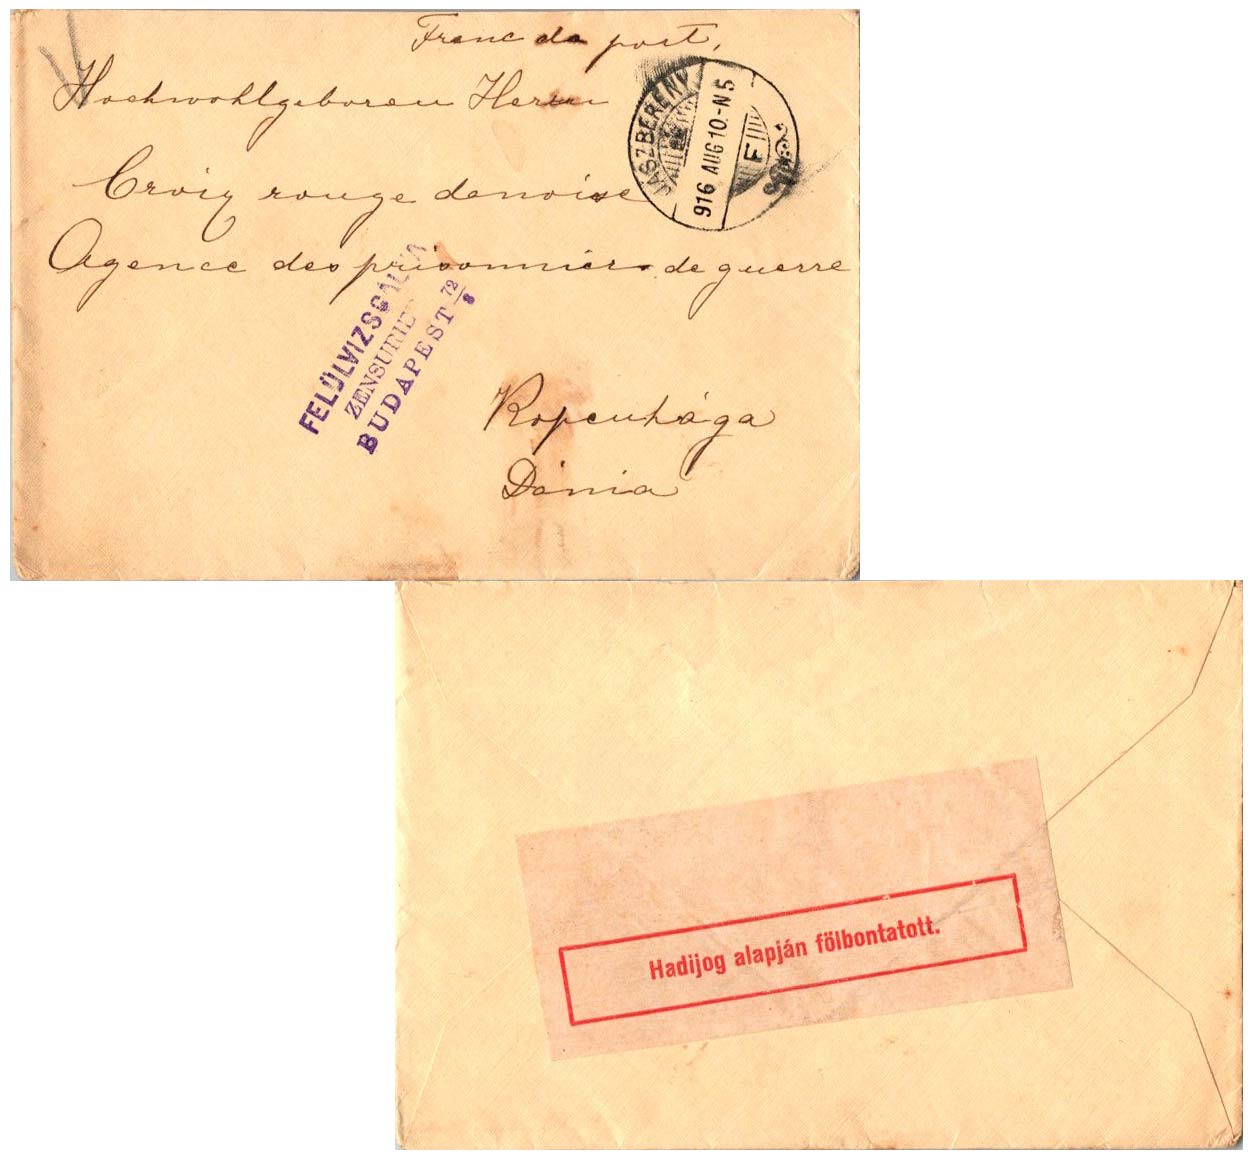 Franc de port,
Hochwohlgeboren Herrn
Croix rouge danoise
Agence des prisonniers de guerre
Kopenhága
Dánia
JÁSZBERÉNY
916 AUG 10.-N5
F
FELÜLVIZSGÁLVA
ZENSURIERT
BUDAPEST 72/8
Hadijog alapján fölbontatott.